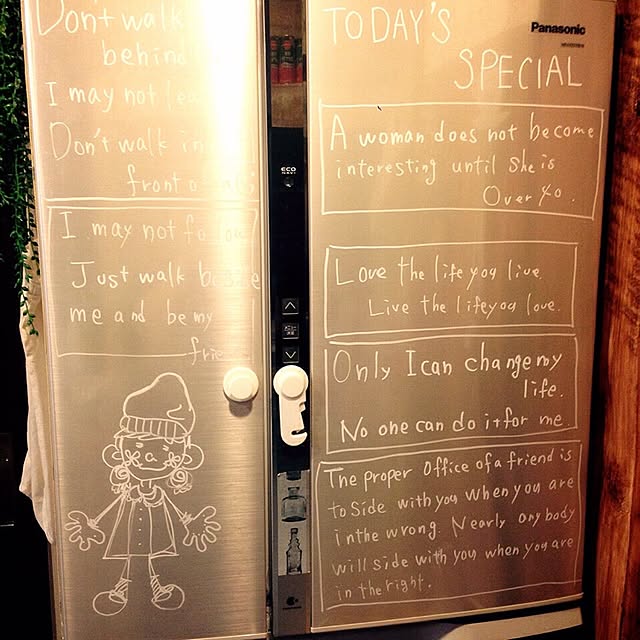 Don't walk
behind
I may not
Don't walk in
front o
I may not fo
Just walk
me and be my
frie
ECO
TODAY'S
Panasonic
SPECIAL
A woman does not become
interesting until she is
Over 40.
Love the life you live.
Live the life you love.
Only I can change my
life.
No one can do it for me.
The proper Office of a friend is
to Side with you when you are
in the wrong. Nearly any body
will side with you when you are
in the right.